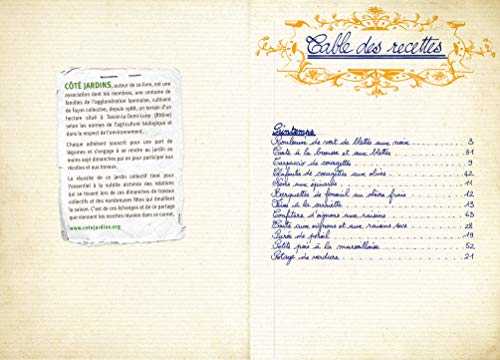 CÔTÉ JARDINS, auteur de ce livre, est une
association dont les membres, une centaine de
familles de l'agglomération lyonnaise, cultivent
de façon collective, depuis 1986, un terrain d'un
hectare situé à Tassin-la-Demi-Lune (Rhône)
selon les normes de l'agriculture biologique et
dans le respect de l'environnement.
Chaque adhérent souscrit pour une part de
légumes et s'engage à se rendre au jardin au
moins sept dimanches par an pour participer aux
récoltes et aux travaux.
La réussite de ce jardin collectif tient pour
l'essentiel à la subtile alchimie des relations
qui se nouent lors de ces dimanches de travaux
collectifs et des nombreuses fêtes qui émaillent
la saison. C'est de ces échanges et de ce partage
que viennent les recettes réunies dans ce carnet.
www.cotejardins.org
Table des recettes
Printemps
Rouleaux de vert de blette aux noix 3
Tarte à la brousse et aux blettes 31
de courgettes 9
Clafoutis de courgettes aux olives 42
aux épinards 11
Barquettes de fenouil au chèvre frais 12
à la sarriette 13
Confiture d'oignons aux raisins 43
Tarte aux oignons et aux raisins secs 28
Purée de persil 19
Petits pois à la marseillaise 52
Potage de verdure 21